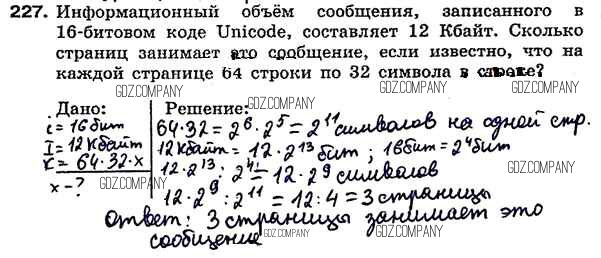 227. Информационный объём сообщения, записанного в
16-битовом коде Unicode, составляет 12 Кбайт. Сколько
страниц занимает это сообщение, если известно, что на
каждой странице 64 строки по 32 символа в строке?
GDZ.COMPANY GDZ.COMPANY GDZ.COMPANY
Дано:
i = 16 бит
I = 12 Кбайт
K = 64·32·x
x - ?
Решение:
64·32 = 2⁶·2⁵ = 2¹¹ символов на одной стр.
12 Кбайт = 12·2¹³ бит; 16 бит = 2⁴ бит
12·2¹³ : 2⁴ = 12·2⁹ символов
12·2⁹ : 2¹¹ = 12:4 = 3 страницы
Ответ: 3 страницы занимает это
сообщение
GDZ.COMPANY GDZ.COMPANY